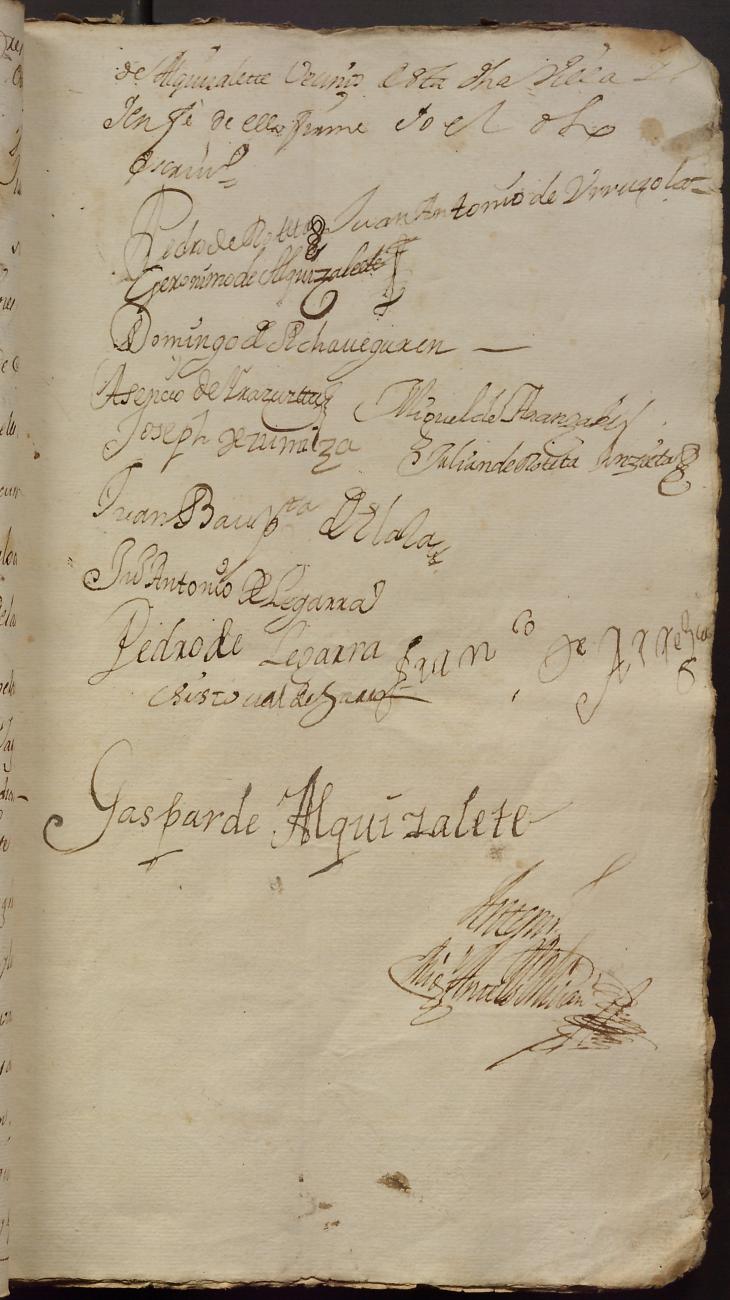 de Alquizalette Vecinos desta dha Villa
Jen fè de ello firme Yo el dho
escriuº
Pedro de Juan Antonio de Vrruzola
Geronimo de Alquizalete
Domingo de Echaueguren
Asencio de Yrazuzta Miguel de Aranzabi
Joseph de zumiza Julian de Roteta Ynzieta
Juan Baupta de Elola
Juº Antonio de Legarra
Pedro de Legarra Franco de Arreze
Christoual de
Gaspar de Alquizalete
Ante mi